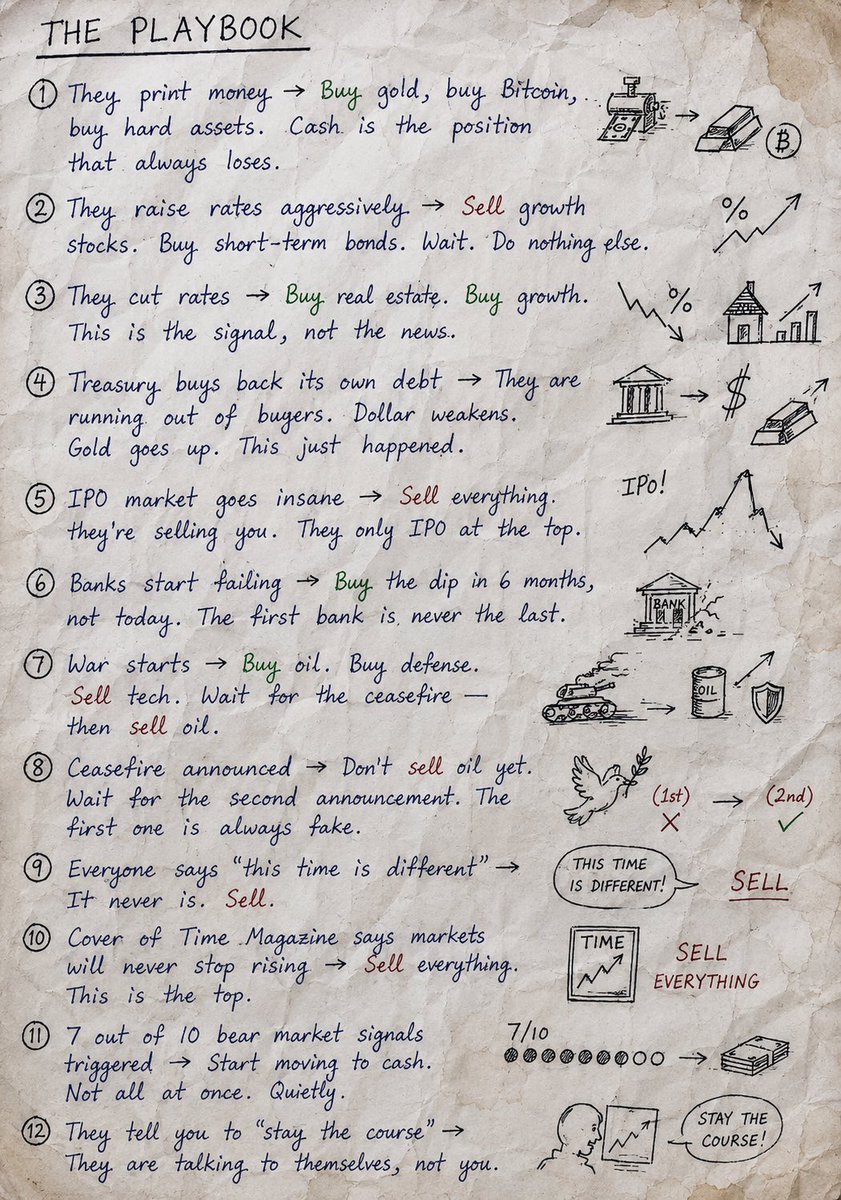 THE PLAYBOOK
① They print money → Buy gold, buy Bitcoin,
buy hard assets. Cash is the position
that always loses.
② They raise rates aggressively → Sell growth
stocks. Buy short-term bonds. Wait. Do nothing else.
%
③ They cut rates → Buy real estate. Buy growth.
This is the signal, not the news.
%
④ Treasury buys back its own debt → They are
running out of bugers. Dollar weakens.
Gold goes up. This just happened.
$
⑤ IPO market goes insane → Sell everything.
they're selling you. They only IPO at the top.
IPO!
⑥ Banks start failing → Buy the dip in 6 months,
not today. The first bank is never the last.
BANK
⑦ War starts → Buy oil. Buy defense.
Sell tech. Wait for the ceasefire —
then sell oil.
OIL
⑧ Ceasefire announced → Don't sell oil yet.
Wait for the second announcement. The
first one is always fake.
(1st) → (2nd)
⑨ Everyone says "this time is different" →
It never is. Sell.
THIS TIME
IS DIFFERENT!
SELL
⑩ Cover of Time Magazine says markets
will never stop rising → Sell everything.
This is the top.
TIME
SELL
EVERYTHING
⑪ 7 out of 10 bear market signals
triggered → Start moving to cash.
Not all at once. Quietly.
7/10
⑫ They tell you to "stay the course" →
They are talking to themselves, not you.
STAY THE
COURSE!